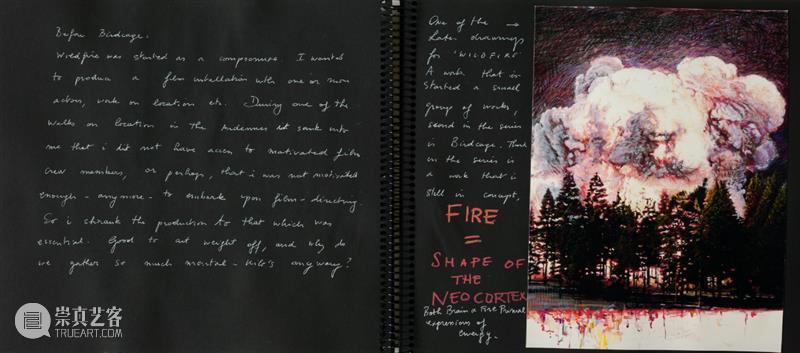 Before Birdcage.
Wildfire was started as a compromise. I wanted
to produce a film installation with one or more
actors, work on location etc. During one of the
walks on location in the Ardennes it sank into
me that i did not have acces to motivated film
crew members, or perhaps, that i was not motivated
enough - anymore - to embark upon film-directing.
So i shrank the production to that which was
essential. Good to cut weight off, and why do
we gather so much mental-kilo's anyway?
One of the →
later drawings
for 'WILDFIRE'
A work that is
started a small
group of works,
second in the series
is Birdcage. Third
in the series is
a work that is
still in concept,
FIRE
=
SHAPE OF
THE
NEOCORTEX
Both Brain & Fire Primal
expressions of
energy.
崇真艺客
TRUEART.COM